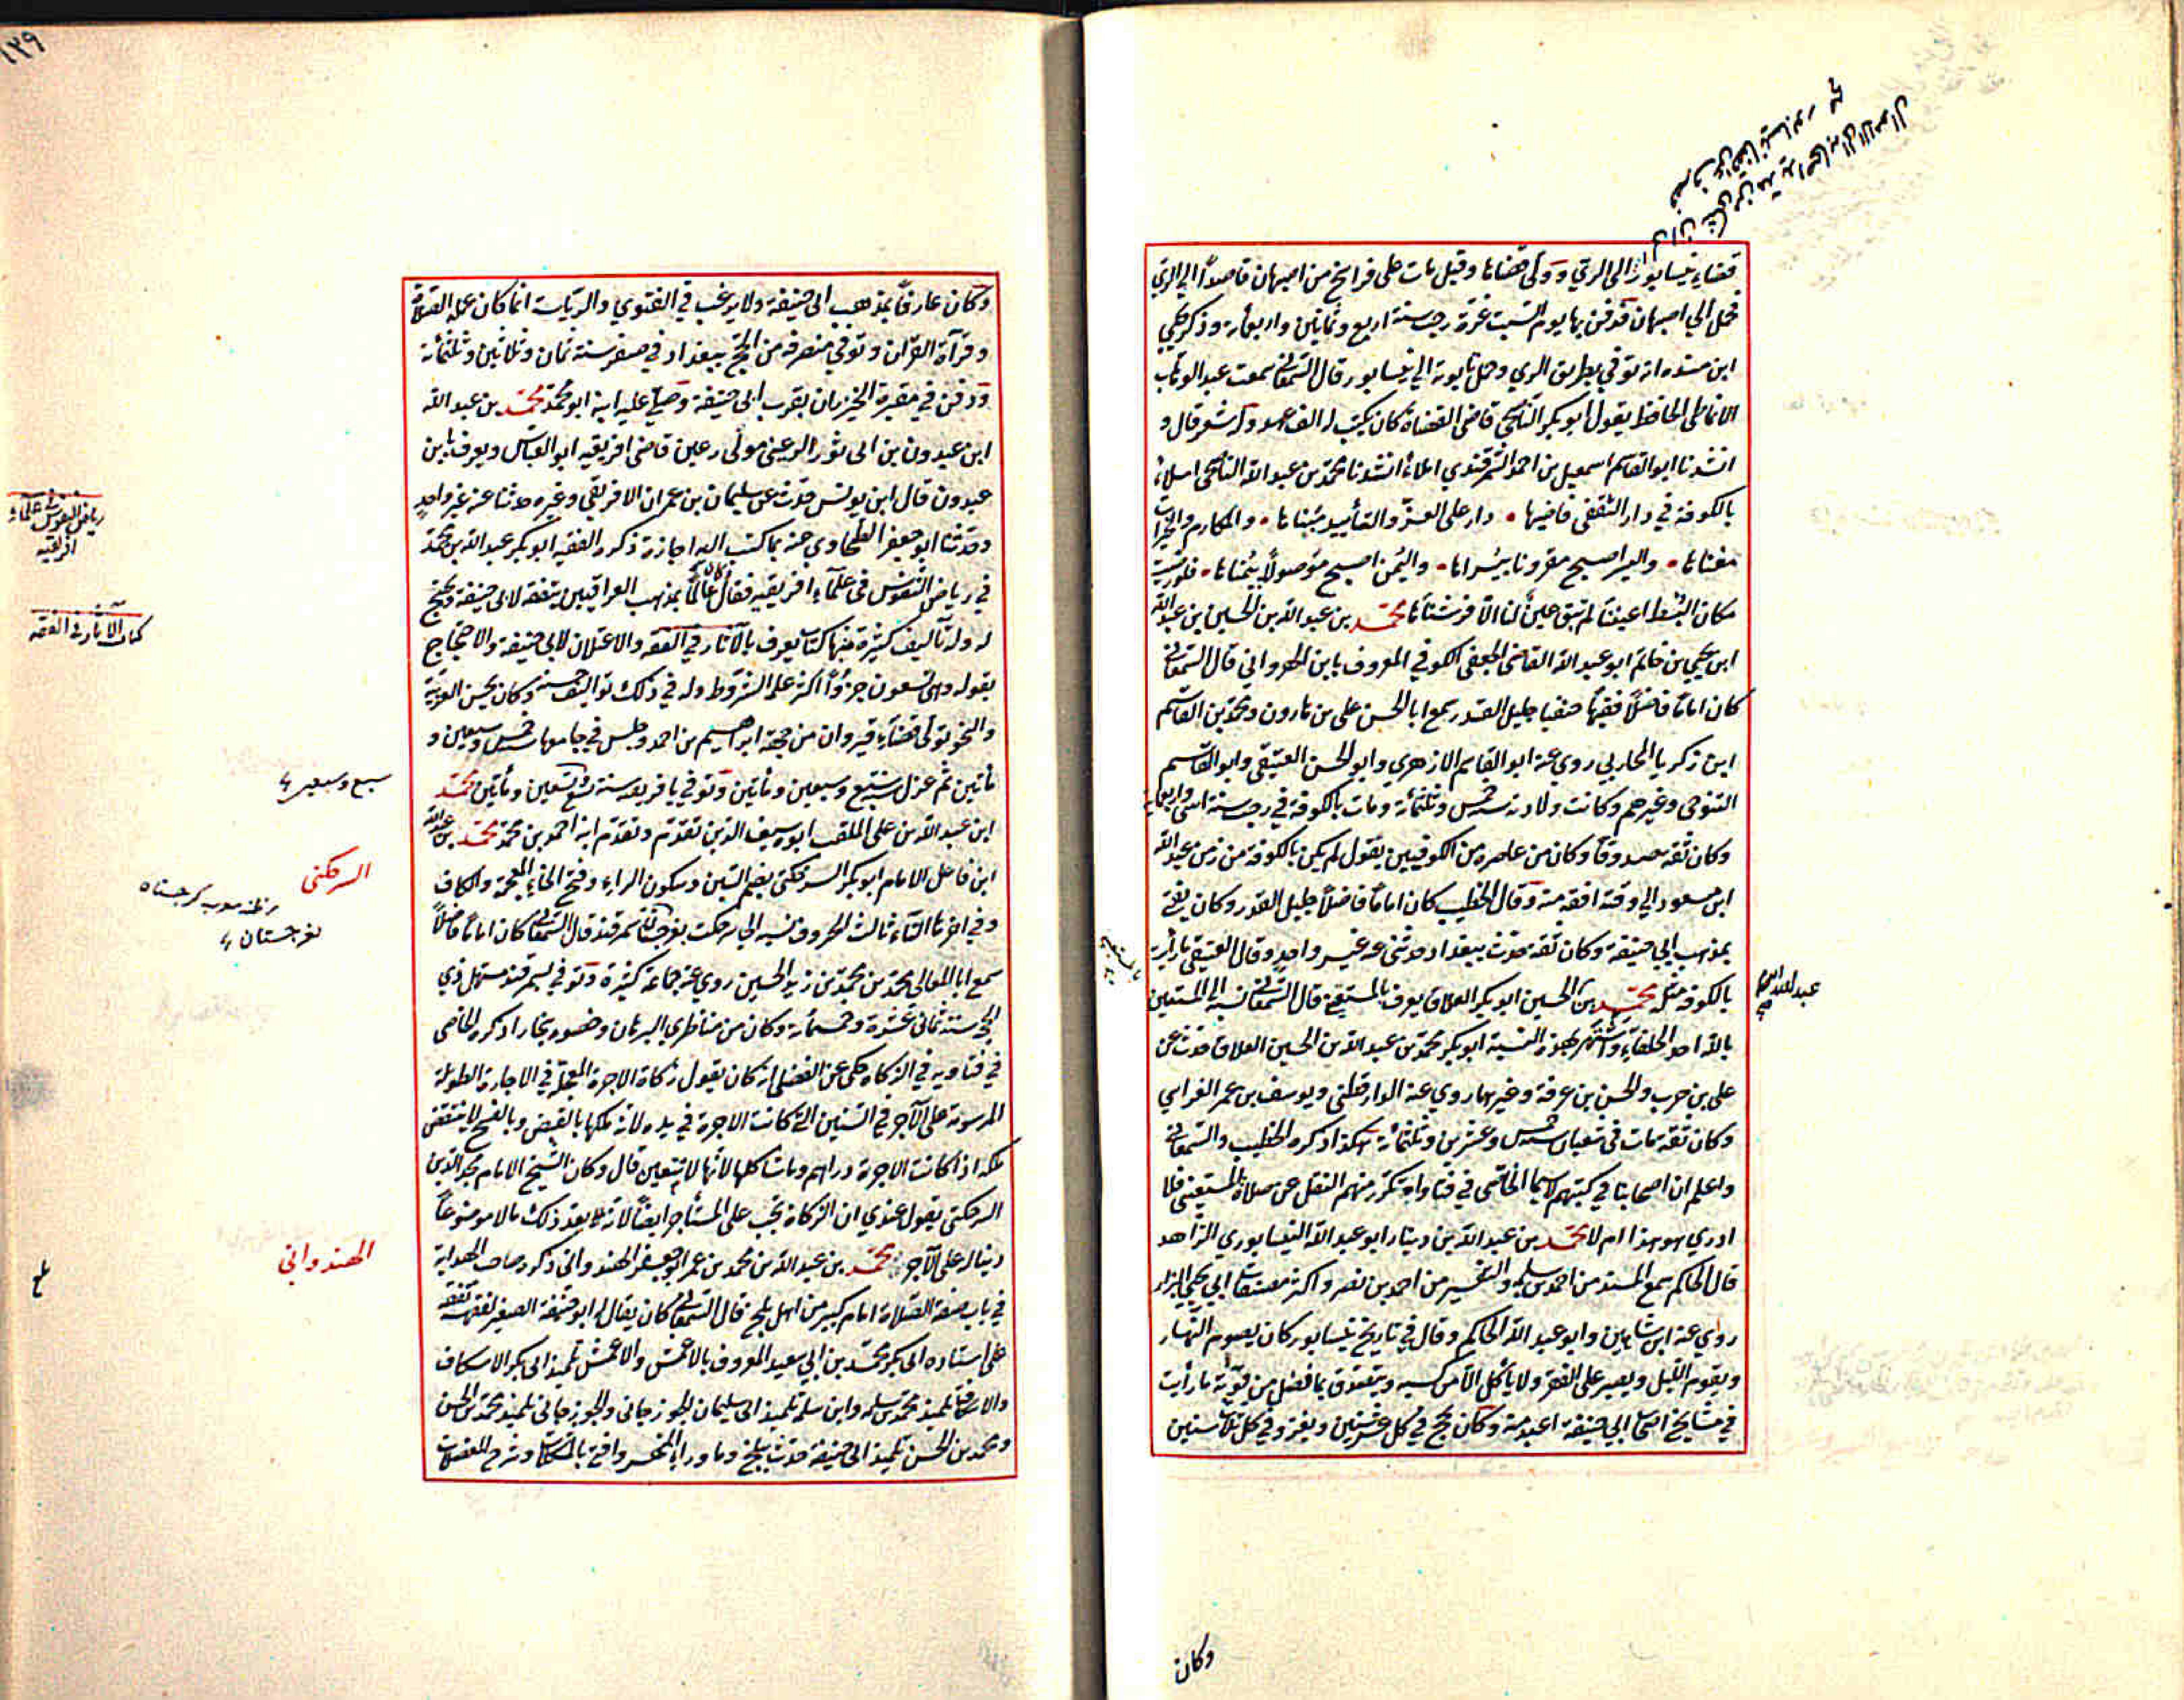 قضاء نيسابور الى الري وولى قضاها وقيل مات على فراسخ من اصبهان قاصدا الي الري
فحمل الي اصبهان فدفن بها يوم السبت غرة رجب سنة اربع وثمانين واربعمائة وذكر يحيي
ابن منده انه توفي بطريق الري وحمل تابوته الي نيسابور قال السمعاني سمعت عبد الوهاب
الانماطي الحافظ يقول ابو بكر الناصحي قاضي القضاة كان يكتب له وله شعر قال و
انشدنا ابو القاسم اسمعيل بن احمد السمرقندي املاء انشدنا محمد بن عبد الله الناصحي املاء
بالكوفة في دار الثقفي قاضيها • دار على العز والتأييد مبناها • والمكارم
مغناها • واليسر اصبح مقرونا بيسراها • واليمن اصبح موصولا بيمناها • فلو
مكان البسط اعيننا لم تبق عين لنا الا فرشناها محمد بن عبد الله بن الحسين بن عبد الله
ابن يحيي بن حاتم ابو عبد الله القاضي الجعفي الكوفي المعروف بابن الهرواني قال السمعاني
كان اماما فاضلا فقيها حنفيا جليل القدر سمع ابا الحسن علي بن هارون ومحمد بن القاسم
ابن زكريا المحاربي روي عنه ابو القاسم الازهري وابو الحسن العتيقي وابو القاسم
التنوخي وغيرهم وكانت ولادته سنة خمس وثلثمائة ومات بالكوفة في رجب سنة اثنتي واربعمائة
وكان ثقة صدوقا وكان من عاصره من الكوفيين يقول لم يكن بالكوفة من زمن عبد الله
ابن مسعود الي وقته افقه منه وقال الخطيب كان اماما فاضلا جليل القدر وكان يفتي
بمذهب ابي حنيفة وكان ثقة حدث ببغداد حدثني عنه غير واحد وقال العتيقي ما رأيت
بالكوفة مثله محمد بن الحسين ابو بكر العلاف يعرف بالمستعيني قال السمعاني نسبة الى المستعين
بالله احد الخلفاء واشتهر بهذه النسبة ابو بكر محمد بن عبد الله بن الحسين العلاف حدث عن
علي بن حرب والحسن بن عرفة وغيرهما روي عنه الدارقطني ويوسف بن عمر القواس
وكان ثقة مات في شعبان سنة خمس وعشرين وثلثمائة هكذا ذكره الخطيب والسمعاني
واعلم ان اصحابنا في كتبهم لا سيما الخاصي في فتاواه تكرر منهم النقل عن صلاة المستعيني فلا
ادري هو هذا ام لا محمد بن عبد الله بن دينار ابو عبد الله النيسابوري الزاهد
قال الحاكم سمع المسند من احمد بن سلمة والتفسير من احمد بن نصر واكثر مصنفات ابي يحيي البزار
روي عنه ابن شاهين وابو عبد الله الحاكم وقال في تاريخ نيسابور كان يصوم النهار
ويقوم الليل ويصبر على الفقر ولا يأكل الا من كسبه ويتصدق بما فضل من قوته ما رأيت
في مشايخ اصحاب ابي حنيفة اعبد منه وكان يحج في كل عشر سنين ويغزو في كل ثلاث سنين
عبد الله
وكان
١٢٩
وكان عارفا بمذهب ابي حنيفة ولا يرغب في الفتوي والرياسة انما كان عمله الصلاة
وقرآة القران وتوفي منصرفه من الحج ببغداد في صفر سنة ثمان وثلاثين وثلثمائة
ودفن في مقبرة الخيزران بقرب ابي حنيفة وصلي عليه ابنه ابو محمد محمد بن عبد الله
ابن عبدون بن ابي ثور الرعيني مولى رعين قاضي افريقيه ابو العباس ويعرف بابن
عبدون قال ابن يونس حدث عن سليمان بن عمران الافريقي وغيره حدثنا عنه غير واحد
وحدثنا ابو جعفر الطحاوي عنه بما كتب اليه اجازة ذكره الفقيه ابو بكر عبد الله بن محمد
في رياض النفوس في علماء افريقيه فقال كان عالما بمذهب العراقيين يتفقه لابي حنيفة ويحتج
له وله تآليف كثيرة منها كتاب يعرف بالآثار في الفقه والاعتلال لابي حنيفة والاحتجاج
بقوله وهي تسعون جزؤا اكثر علمه الشروط وله في ذلك تواليف حسنة وكان يحسن العربية
والنحو تولى قضاء قيروان من جهة ابراهيم بن احمد وجلس في جامعها سنة خمس وسبعين و
مأتين ثم عزل سنة سبع وسبعين ومأتين وتوفي بافريقيه سنة تسع وتسعين ومأتين محمد
ابن عبد الله بن علي الملقب ابو سيف الدين تقدم وتقدم ابنه احمد بن محمد محمد بن عبد الله
ابن فاعل الامام ابو بكر السرخكتي بضم السين وسكون الراء وفتح الخاء المعجمة والكاف
وفي اخرها التاء ثالث الحروف نسبة الي سرخكت بغرجستان سمرقند قال السمعاني كان اماما فاضلا
سمع ابا المعالي محمد بن محمد بن زيد الحسين روي عنه جماعة كثيرة وتوفي بسمرقند مستهل ذي
الحجة سنة ثماني عشرة وخمسمأة وكان من مناظري البرهان وخصوه ببخارا ذكره الخاصي
في فتاويه في الزكاه حكى عن الفضلي انه كان يقول زكاة الاجرة المعجلة في الاجارة الطويلة
المرسومة على الآجر في السنين التي كانت الاجرة في يده لانه ملكها بالقبض وبالفسخ لا ينتقض
ملكه اذا كانت الاجرة دراهم وما شاكلها لانها لا تتعين قال وكان الشيخ الامام مجد الدين
السرخكتي يقول عندي ان الزكاة تجب على المستأجر ايضا لانه يعد ذلك مالا موضوعا
دينا له على الآجر محمد بن عبد الله بن محمد بن عمر ابو جعفر الهندواني ذكره صاحب الهداية
في باب صفة الصلاة امام كبير من اهل بلخ قال السمعاني كان يقال له ابو حنيفة الصغير لفقهه تفقه
على استاده ابي بكر محمد بن ابي سعيد المعروف بالاعمش والاعمش تلميذ ابي بكر الاسكاف
والاسكاف تلميذ محمد بن سلمه وابن سلمة تلميذ ابي سليمان الجوزجاني والجوزجاني تلميذ محمد بن الحسن
ومحمد بن الحسن تلميذ ابي حنيفة حدث ببلخ وما وراء النهر وافتي بالمشكلات وشرح المعضلات
رياض النفوس علماء
افريقيه
كتاب الآثار في الفقه
سبع وسبعين
السرخكتي
بغرجستان
الهندواني